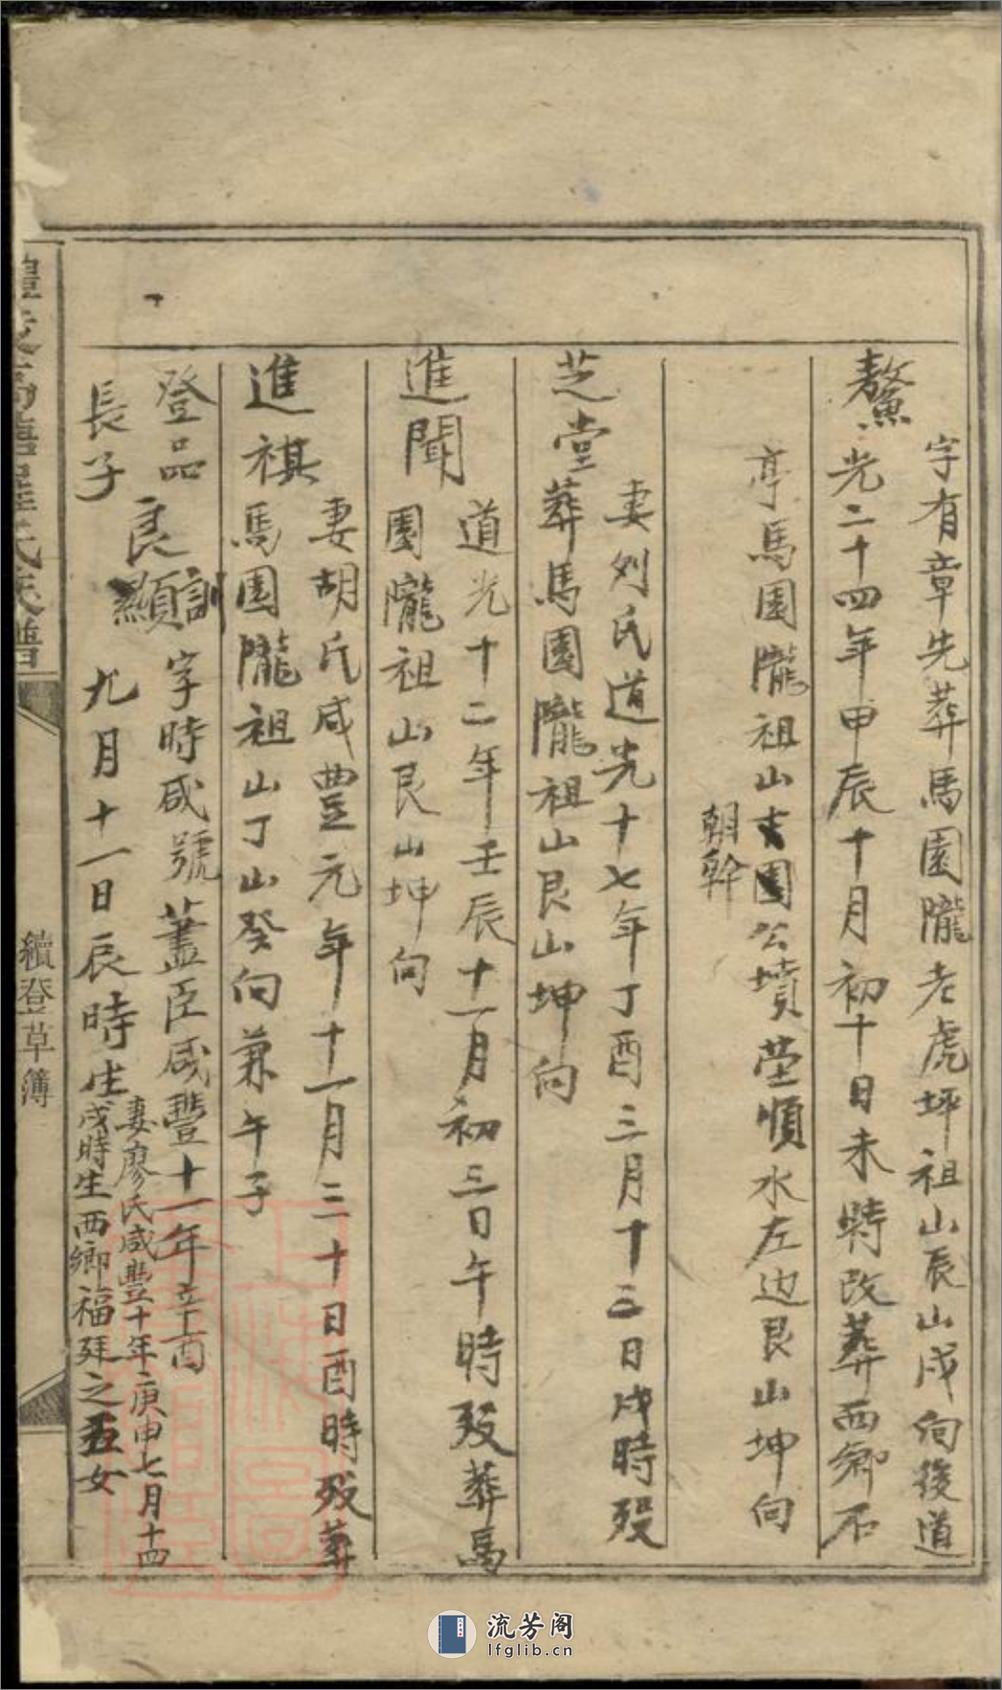 鰲
字有章先葬馬園隴老虎坪祖山辰山戌向後道
光二十四年甲辰十月初十日未時改葬西鄉石
亭馬園隴祖山園公墳塋順水左边艮山坤向
朝幹
芝堂
妻刘氏道光十七年丁酉三月十三日戌時殁
葬馬園隴祖山艮山坤向
進聞
道光十二年壬辰十一月初三日午時殁葬馬
園隴祖山艮山坤向
進祺
妻胡氏咸豐元年十一月三十日酉時殁葬
馬園隴祖山丁山癸向兼午子
登品
長子
良訓
顯
字時咸號藎臣咸豐十一年辛酉
九月十一日辰時生
妻廖氏咸豐十年庚申七月十四
戌時生西鄉福廷之五女
氏族譜
續登草簿
流芳阁
lfglib.cn